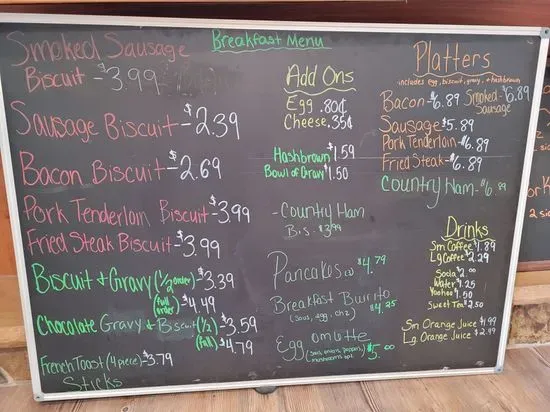 Breakfast Menu
Smoked Sausage
Biscuit - $3.99
Sausage Biscuit - $2.39
Bacon Biscuit - $2.69
Pork Tenderloin Biscuit - $3.99
Fried Steak Biscuit - $3.99
Biscuit + Gravy (1/2 order) - $3.39
(full order) $4.49
Chocolate Gravy + Biscuit (1/2) - $3.59
(full) $4.79
French Toast (4 piece) - $3.79
Sticks
Add Ons
Egg .80¢
Cheese .35¢
Hashbrown $1.59
Bowl of Gravy $1.50
- Country Ham
Bis. $3.99
Pancakes $4.79
Breakfast Burrito
(saus, egg, chz) $4.25
Egg omlette
$5.00
Platters
- includes egg, biscuit, gravy, + hashbrown
Bacon - $6.89 Smoked - $6.89
Sausage
Sausage $5.89
Pork Tenderloin - $6.89
Fried Steak - $6.89
Country Ham - $6.89
Drinks
Sm Coffee $1.89
Lg Coffee $2.29
Soda $2.00
Water $1.25
Yoohoo $1.50
Sweet Tea $2.50
Sm Orange Juice $1.99
Lg Orange Juice $2.99